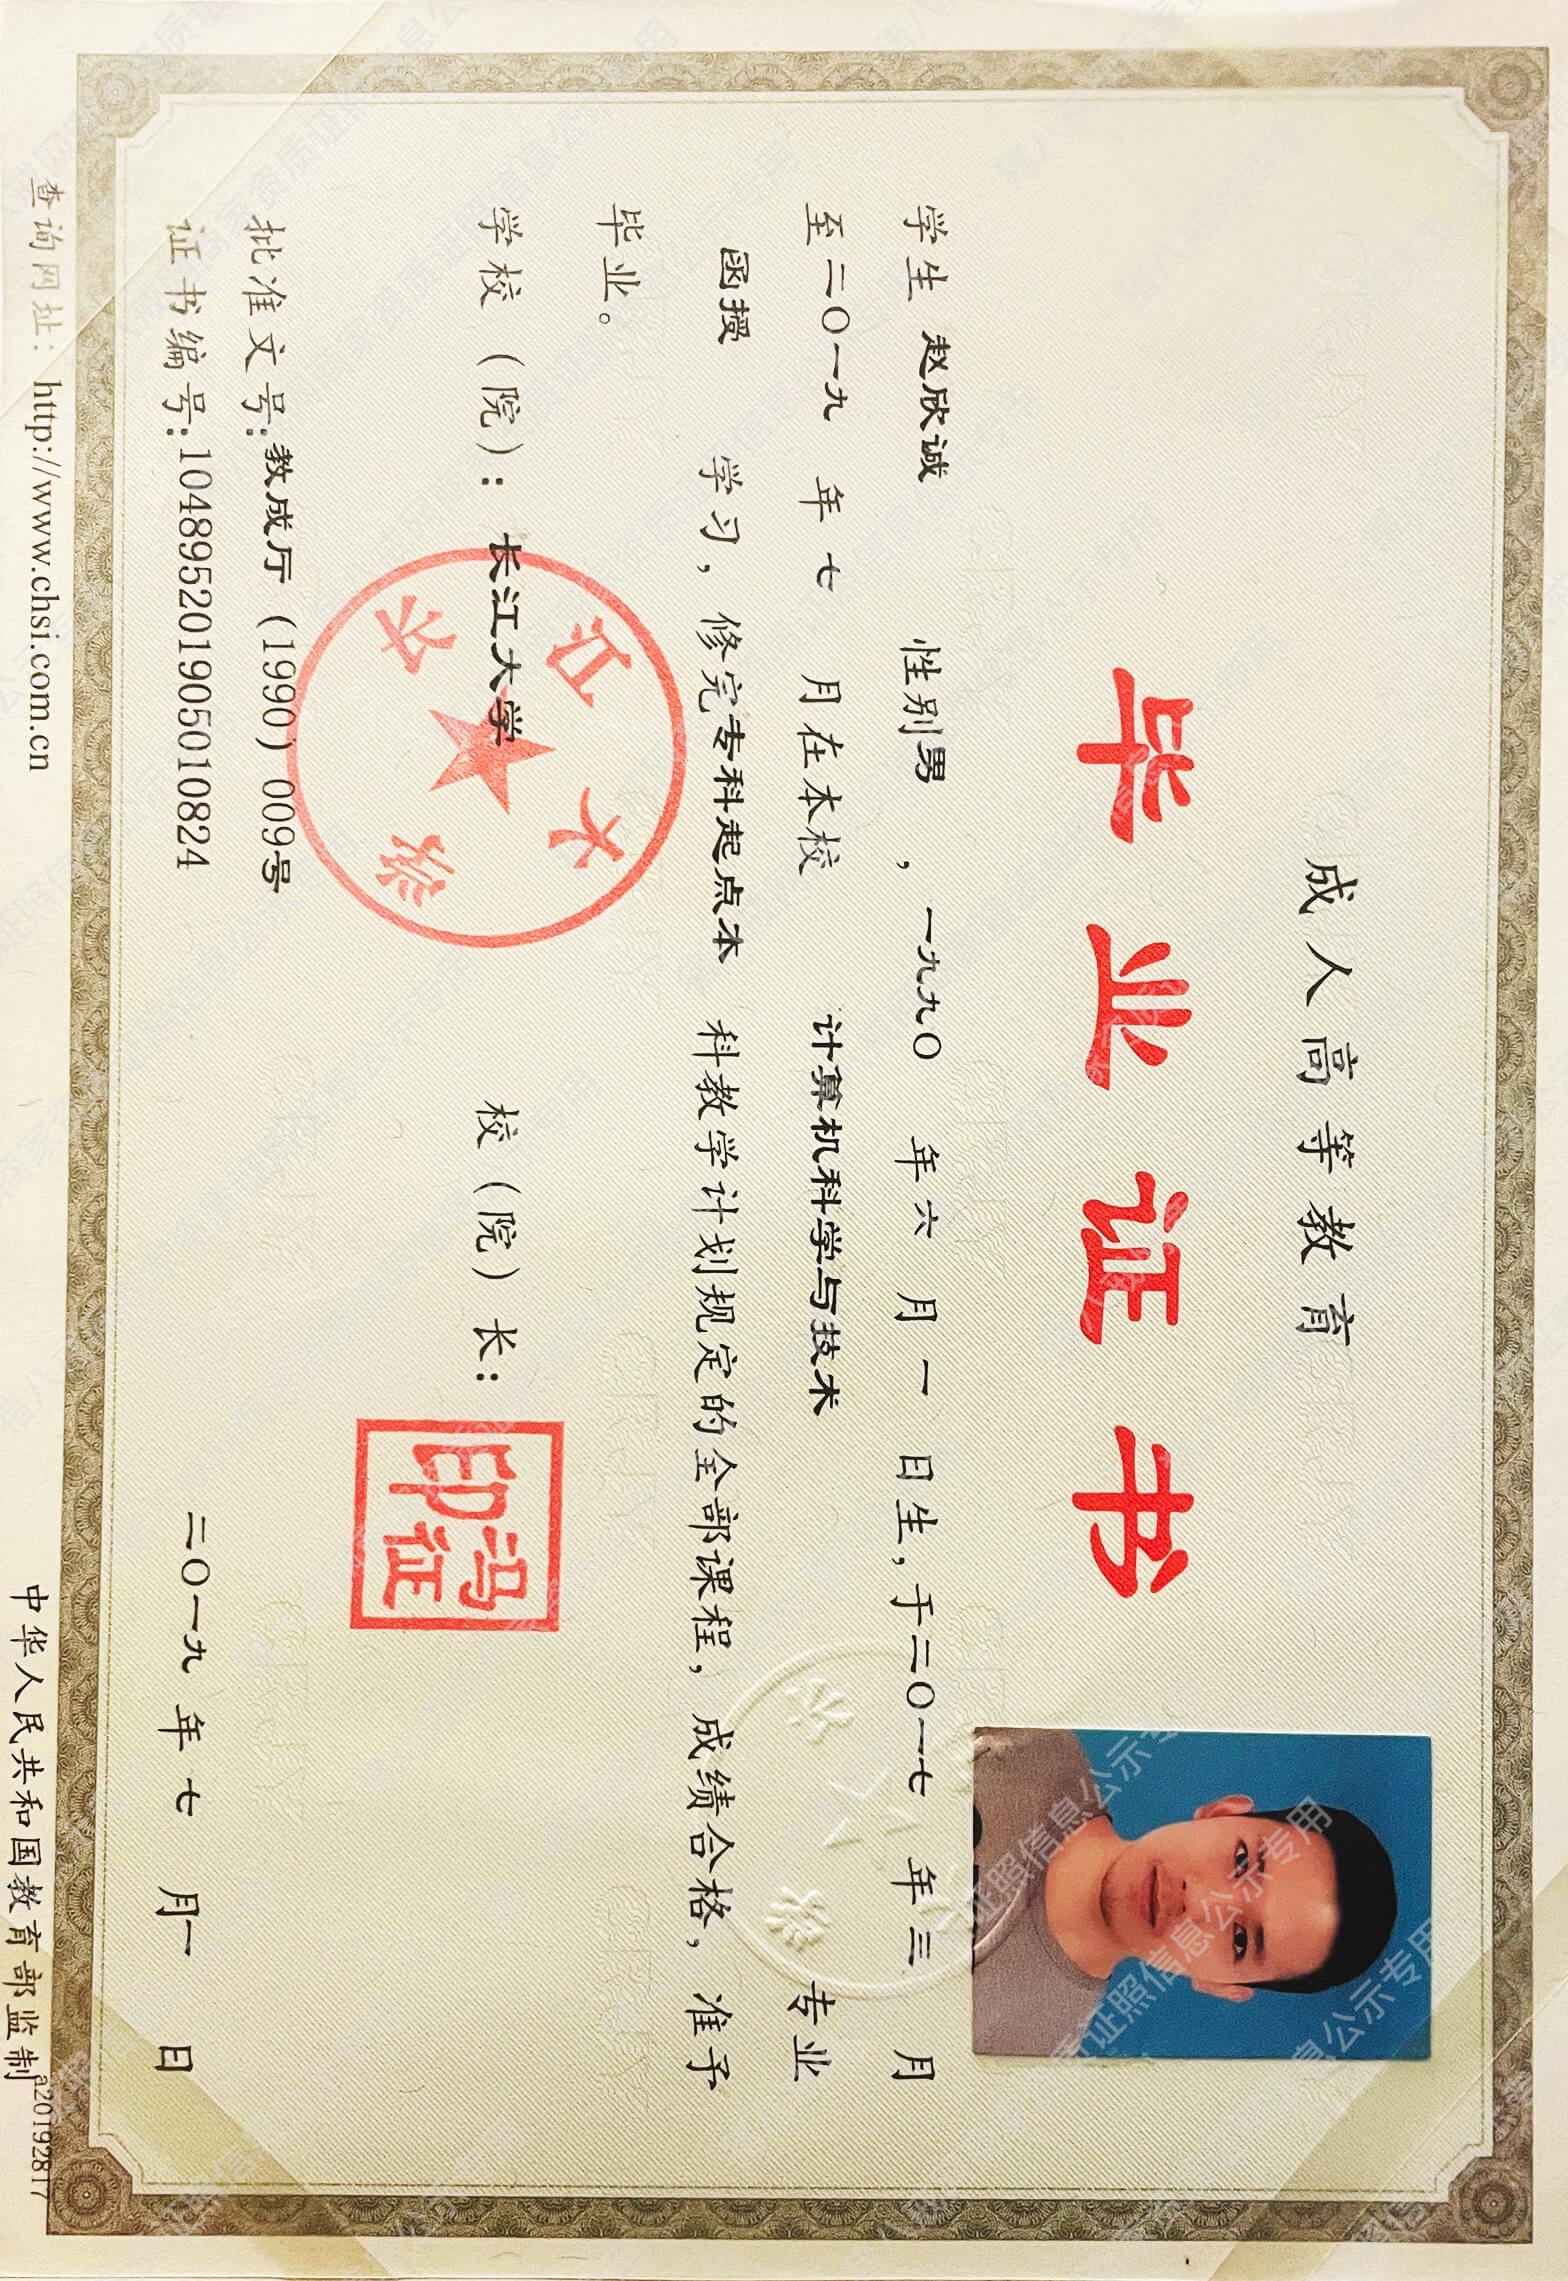 成人高等教育
毕业证书
学生 赵欣诚 性别男 ，一九九〇 年 六 月 一 日生，于二〇一七 年 三 月
至二〇一九 年 七 月在本校 计算机科学与技术 专业
函授 学习，修完专科起点本 科教学计划规定的全部课程，成绩合格，准予
毕业。
学校（院）：长江大学 校（院）长：
长江大学
冯征印
批准文号：教成厅（1990）009号
证书编号：104895201905010824 二〇一九 年 七 月一 日
查询网址：http://www.chsi.com.cn 中华人民共和国教育部监制 a20192817